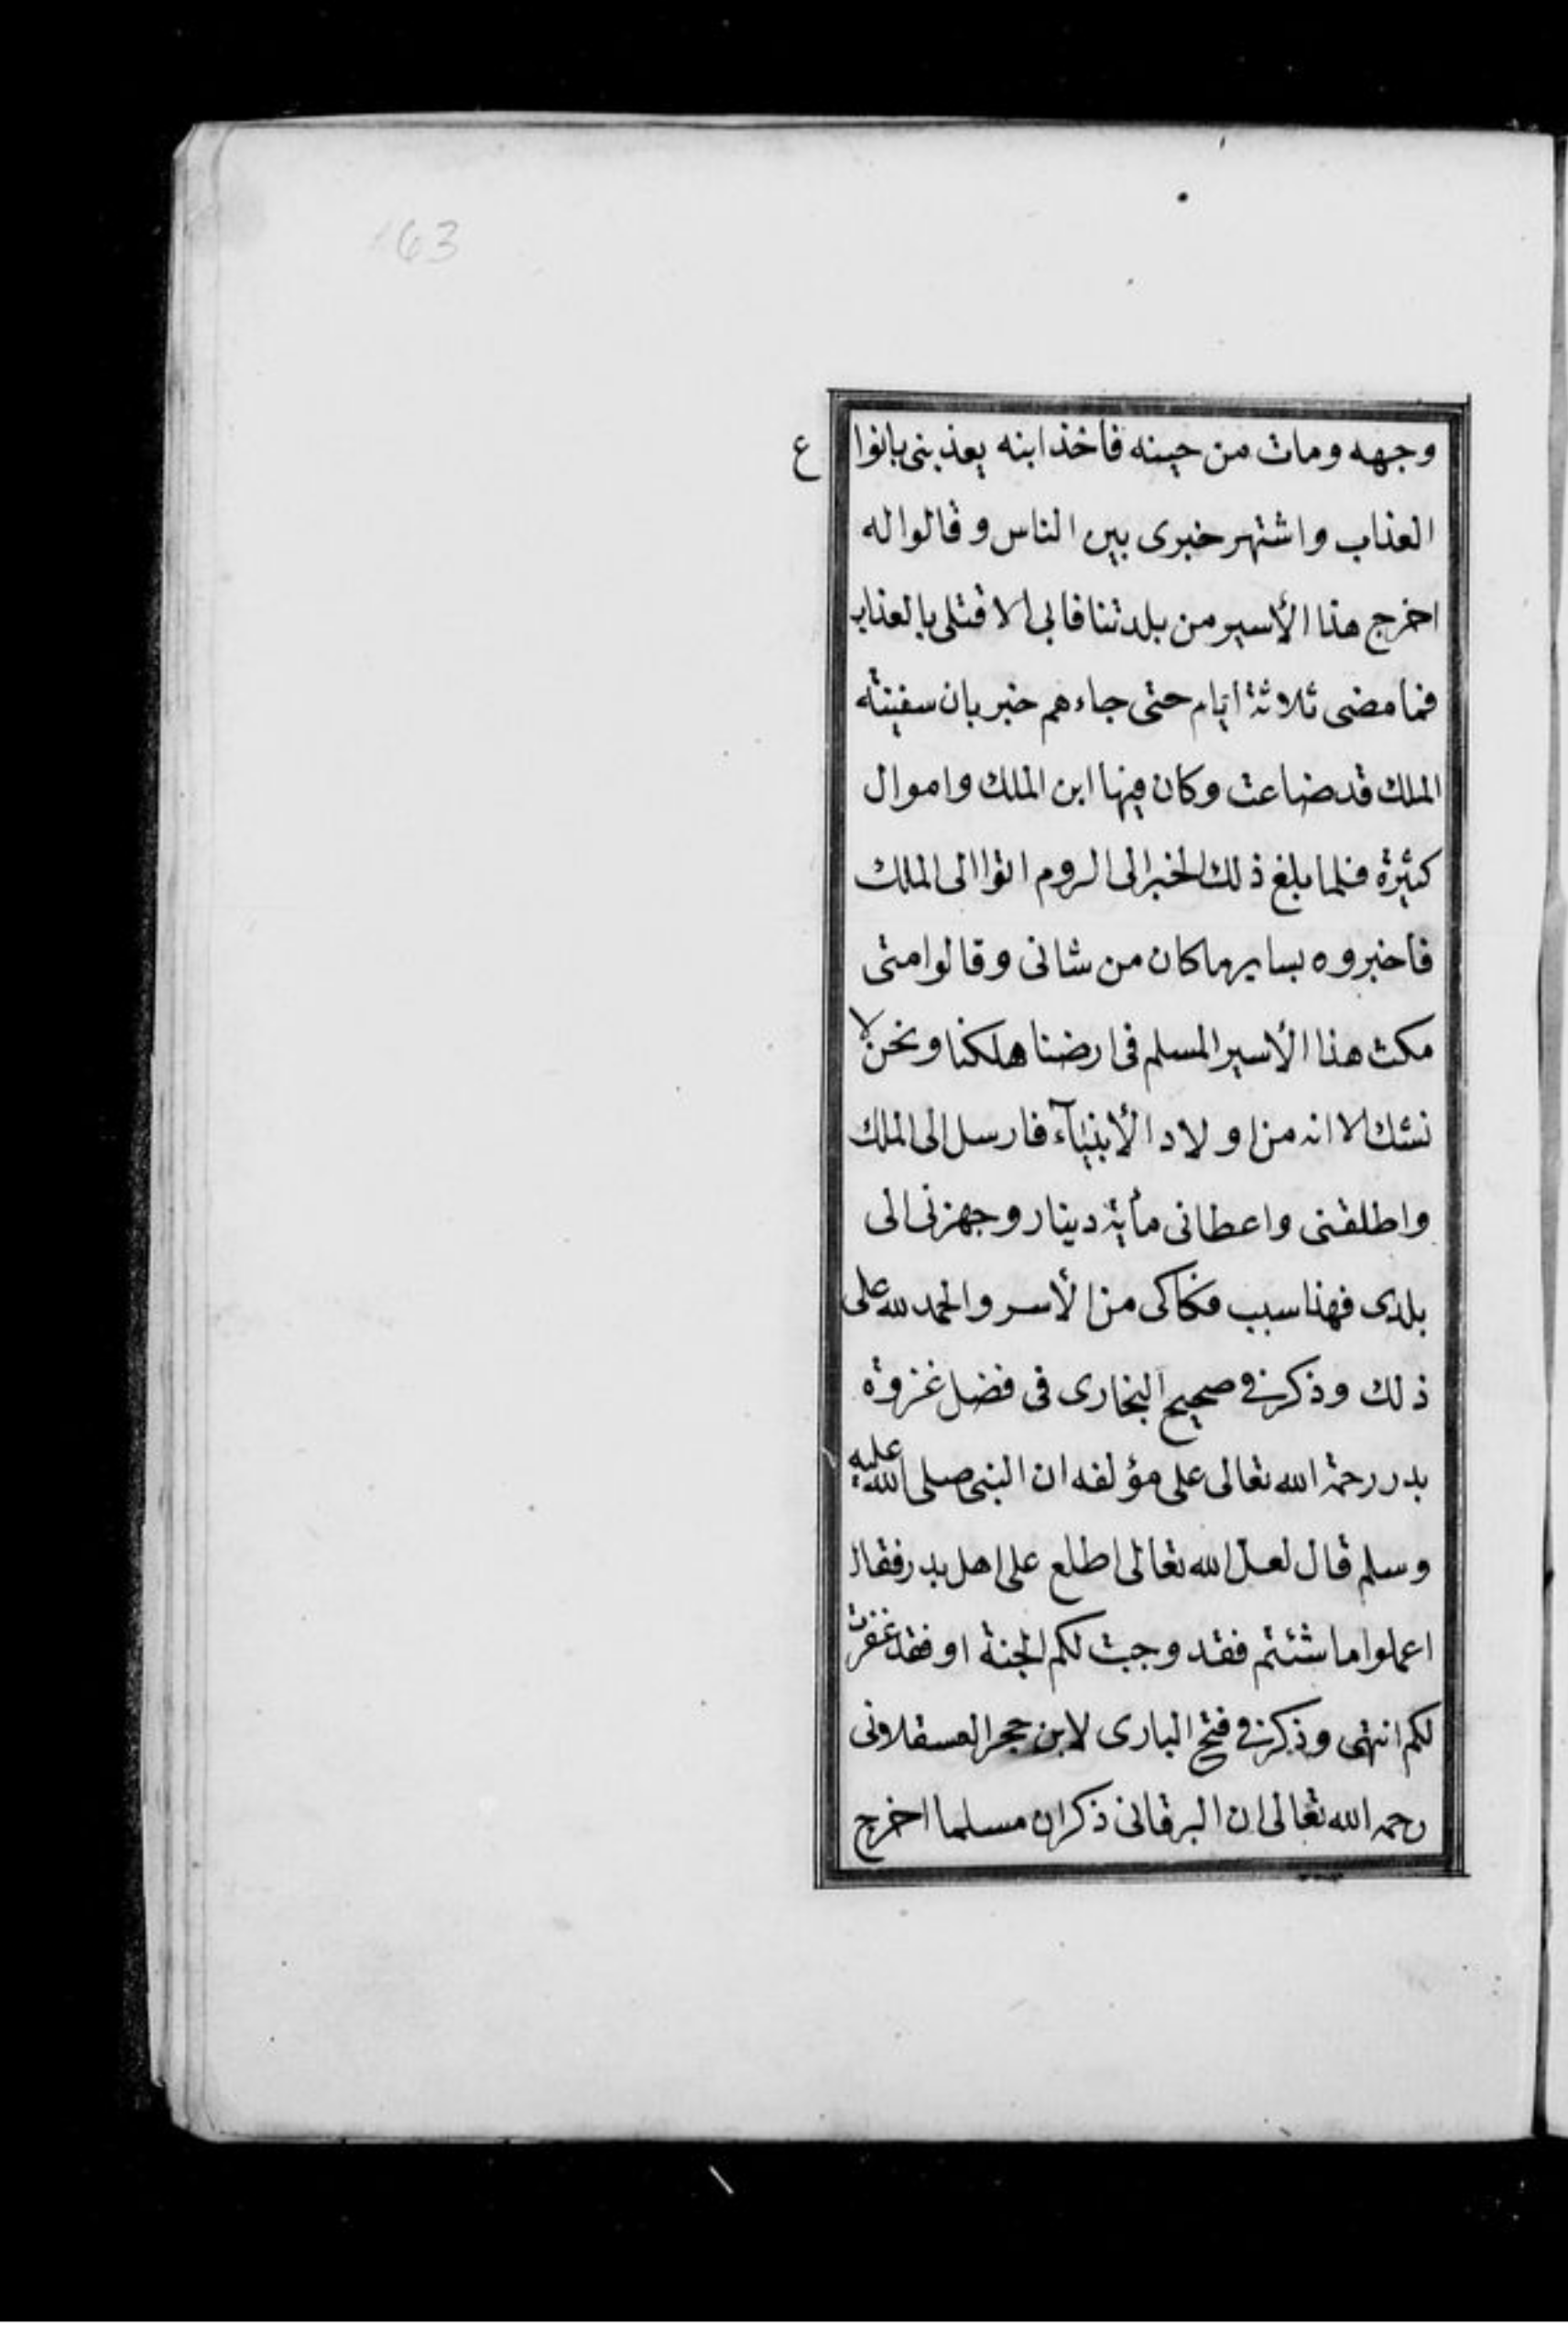 163
وجهه ومات من حينه فأخذ ابنه يعذبنى بانوا
ع
العذاب واشتهر خبرى بين الناس وقالوا له
اخرج هذا الأسير من بلدتنا فابى الا قتلى بالعذاب
فما مضى ثلاثة ايام حتى جاءهم خبر بان سفينة
الملك قد ضاعت وكان فيها ابن الملك واموال
كثيرة فلما بلغ ذلك الخبر الى الروم اتوا الى الملك
فأخبروه بسايرما كان من شانى وقالوا متى
مكث هذا الأسير المسلم فى ارضنا هلكنا ونحن لا
نشك الا انه من اولاد الأنبيآء فارسل الى الملك
واطلقنى واعطانى مأية دينار وجهزنى الى
بلدى فهذا سبب فكاكى من الأسر والحمد لله على
ذلك وذكر فى صحيح البخارى فى فضل غزوة
بدر رحمة الله تعالى على مؤلفه ان النبى صلى الله عليه
وسلم قال لعل الله تعالى اطلع على اهل بدر فقال
اعملوا ما شئتم فقد وجبت لكم الجنة او فقد غفرت
لكم انتهى وذكر فى فتح البارى لابن حجر العسقلانى
رحمه الله تعالى ان البرقانى ذكر ان مسلما اخرج